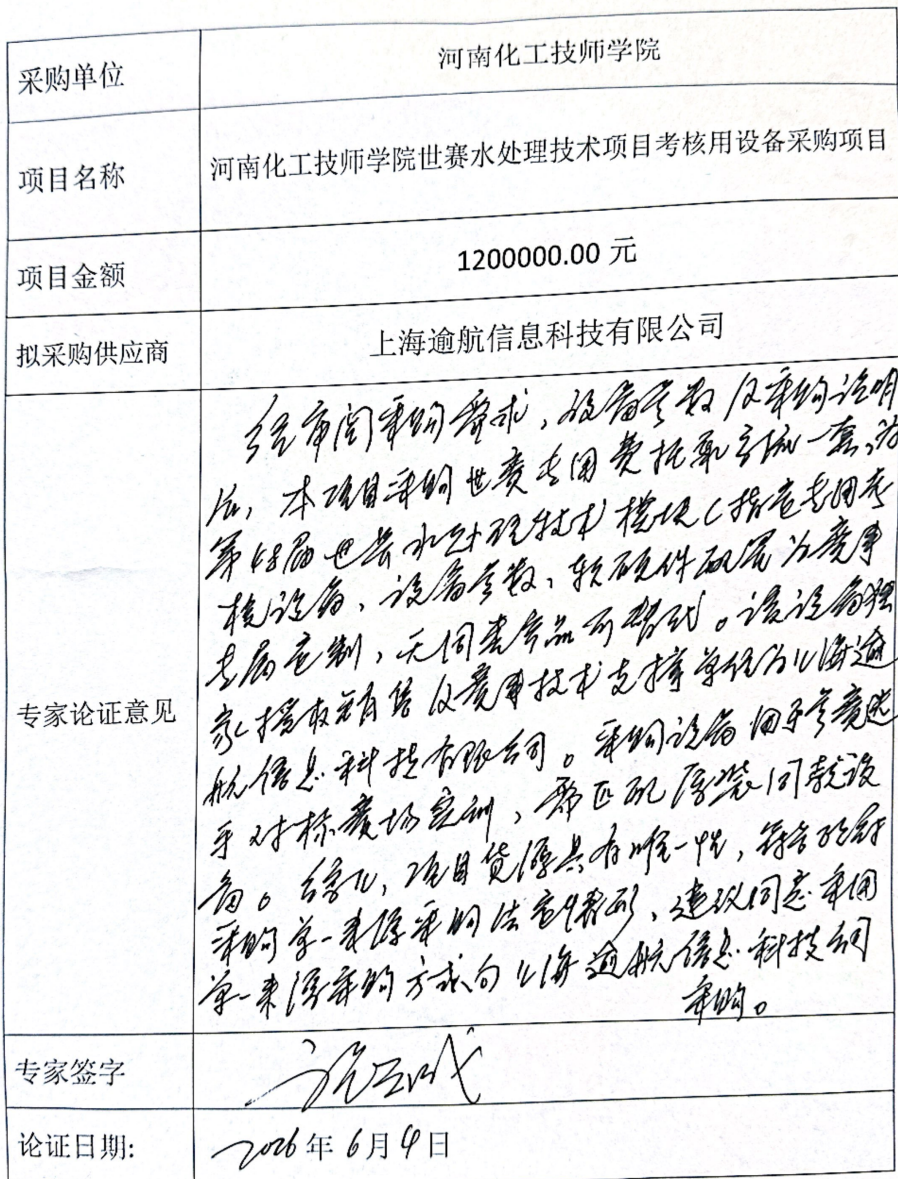 采购单位
河南化工技师学院
项目名称
河南化工技师学院世赛水处理技术项目考核用设备采购项目
项目金额
1200000.00 元
拟采购供应商
上海逾航信息科技有限公司
专家论证意见
经审阅采购需求,设备参数及采购说明
后,本项目采购世赛专用赛托系统一套,为
第48届世赛水处理技术模块C指定专用考
核设备,设备参数、软硬件配置为赛事
专属定制,无同类产品可替代。该设备独
家授权销售及赛事技术支撑单位为上海逾
航信息科技有限公司。采购设备用于参赛选
手对标赛场实训,需匹配原装同款设
备。综上,项目货源具有唯一性,符合政府
采购单一来源采购法定情形,建议同意采用
单一来源采购方式向上海逾航信息科技公司
采购。
专家签字
论证日期:
2026年6月4日